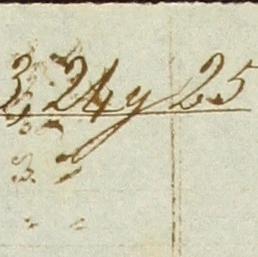 3, 24 y 25